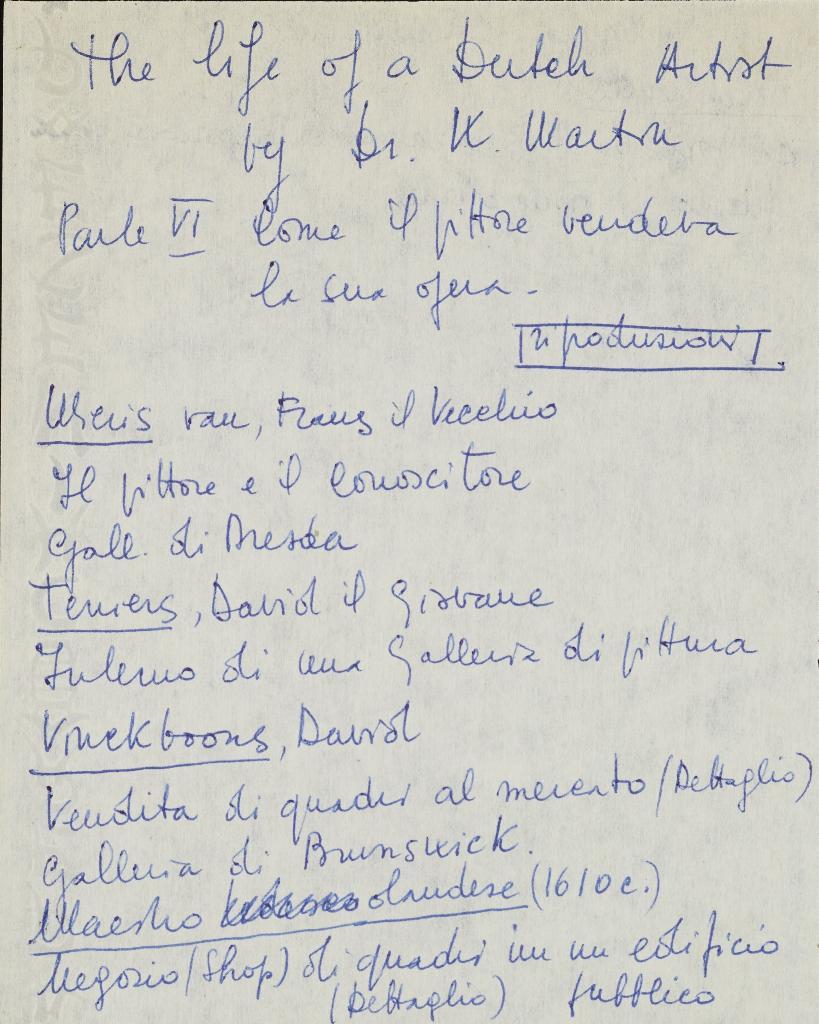 The life of a Dutch Artist
by Dr. W. Martin
Parte VI Come il pittore vendeva
la sua opera -
riproduzioni
Mieris van, Frans il Vecchio
Il pittore e il conoscitore
Gall. di Dresda
Teniers, David il Giovane
Interno di una Galleria di pittura
Vinckboons, David
Vendita di quadri al mercato (Dettaglio)
Galleria di Brunswick.
Maestro olandese (1610 c.)
Negozio (Shop) di quadri in un edificio
(Dettaglio) pubblico